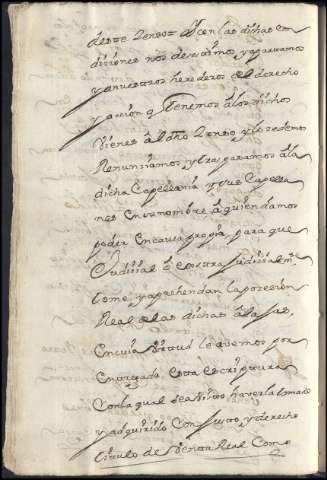 deste Zenso Y Con las dichas con
diciones nos desistimos y apartamos
y a nuestros herederos del derecho
y accion q tenemos a los dichos
Vienes a el dho Zenso y lo cedemos
Renunciamos y traspasamos a la
dicha Capellania y sus Capella
nes En su nombre a quien damos
poder En causa propia para que
Judicial o extra Judicial mte
tome y aprehendan la posesion
Real de las dichas
En cuia Virtud lo avemos por
Entregado esta escriptura
Con la qual sea Visto haverla tomado
y adquirido Con Justo y derecho
titulo de Venta Real Como